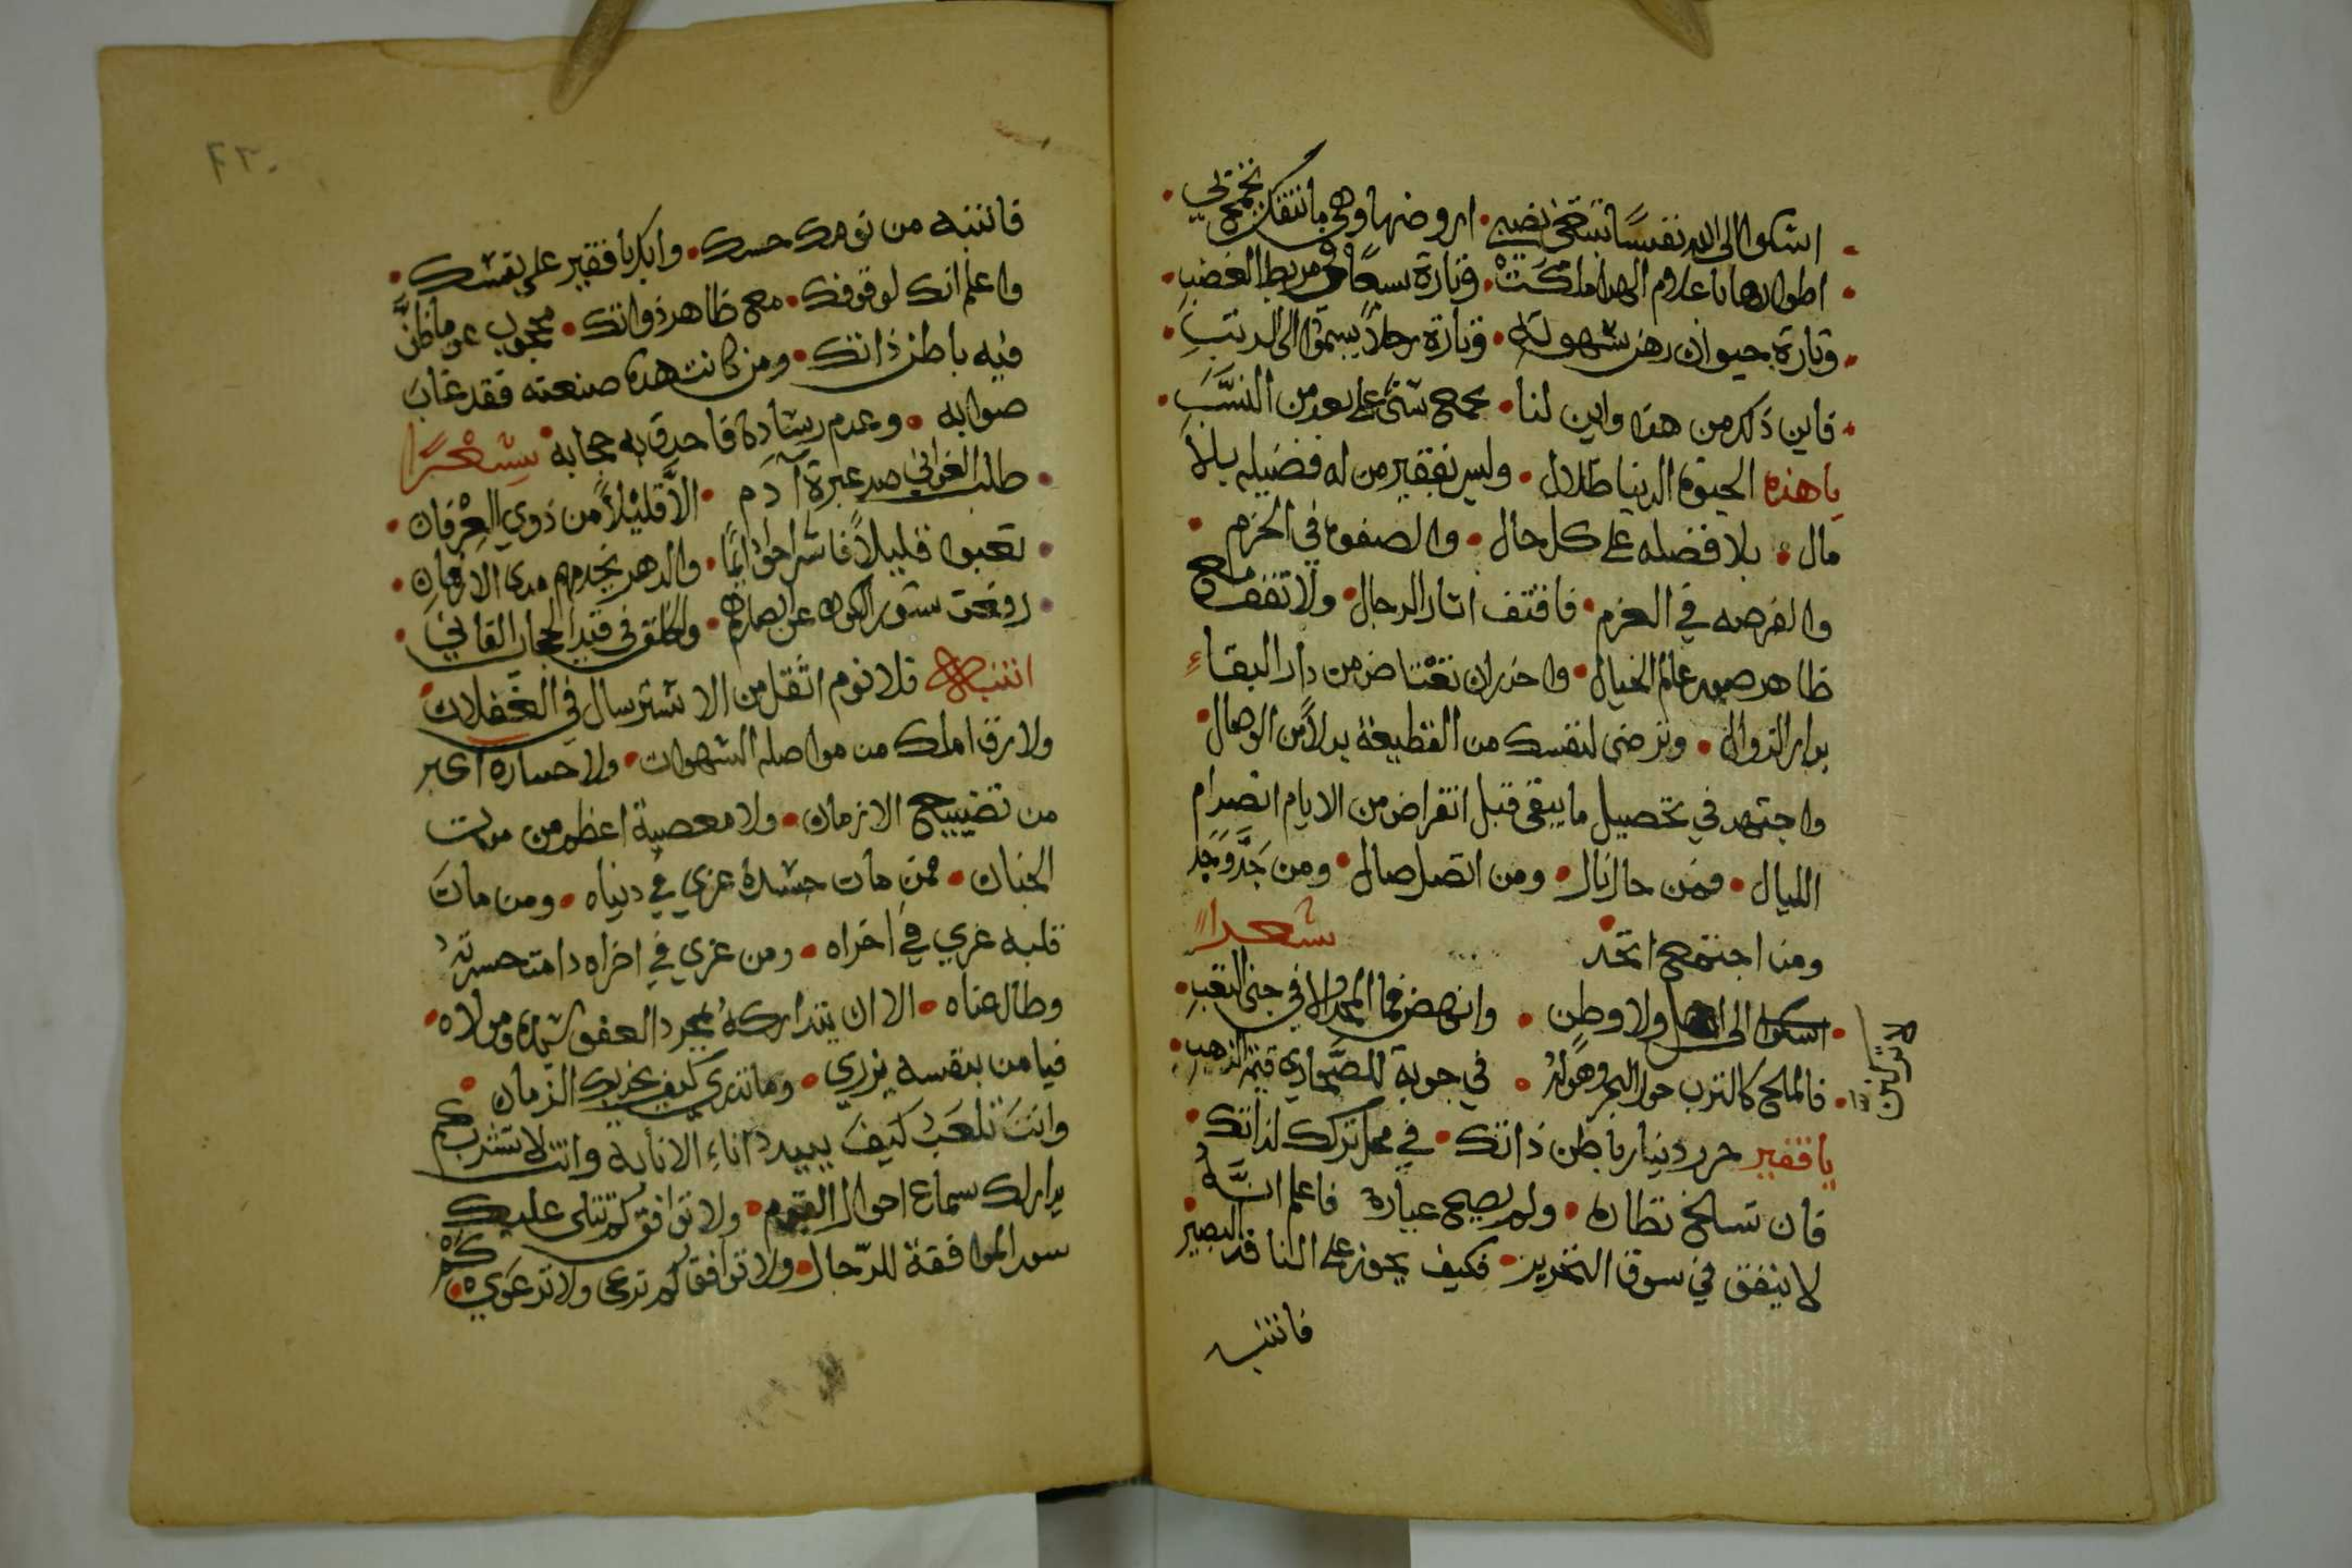 اشكوا الى الله نفسًا تنتخي نصبي • اروضها وهي ما تنفك تجمح بي •
اطوارها يا غلام الهدا ملكت • وتارة سبعًا في مربط الغضب •
وتارة حيوان رهن شهوته • وتارة رجلاً يسمو الى الرتب •
فاين ذكر من هذا واين لنا • بجمع شتى على بعد من النسب •
يا هذه الحيوة الدنيا ظلال • وليس بفقير من له فضيله بلا
مال • بلا فضله على كل حال • والصفوه في الحزم •
والفرصه في العزم • فاقتف اثار الرجال • ولا تقف مع
ظاهر صور عالم الخيال • واحذر ان تعتاض من دار البقاء
بدار الزوال • وترضى لنفسك من القطيعة بدلاً من الوصال •
واجتهد في تحصيل ما يبقى قبل انقراض من الايام انصرام
الليال • فمن حال نال • ومن اتصل صال • ومن جَدَّ وَجَد
ومن اجتمع اتحد • شعرا
لا تركنن
• اسكوا الى اهل ولا وطن • وانهض فما المجد الا في جنى التعب •
• فالملح كالترب حول البحر وهو له • في جوبة الصحاري قيمة الذهب •
يا فقير حرر دينار باطن ذاتك • في محل ترك لذاتك •
فان تسالخ نظاره • ولم يصح عياره فاعلم انَّه
لا ينفق في سوق التحرير • فكيف يجوز على الناقد البصير •
فانتبه
٢٣٠
فانتبه من نومك حسك • وابك يا فقير على نفسك •
واعلم انك لوقوفك • مع ظاهر ذواتك • محجوب عن ما ظنَّ
فيه باطن ذاتك • ومن كانت هذه صنعته فقد غاب
صوابه • وعدم رشاده فاحدق به حجابه • شعرًا
• طلب الغواني صد عبرة آدم • الا قليلاً من ذوي العرفان •
• تعبوا قليلاً فاستراحوا دايمًا • والدهر يخدمهم مدى الازمان •
• رفعت ستور الكون عن ابصارهم • والخلق في قيد الحجاب الفاني •
انتباه فلا نوم اثقل من الاسترسال في الغفلات •
ولا رق املك من مواصله الشهوات • ولا خساره اكبر
من تضييع الازمان • ولا معصية اعظم من موت
الجنان • فمن مات حسده عزي في دنياه • ومن مات
قلبه عزي في اخراه • ومن عزي في اخراه دامت حسرته
وطال عناه • الا ان يتداركه بمجرد العفو سيده ومولاه •
فيا من بنفسه يزري • وما تدري كيف بخزيك الزمان •
وانت تلعب كيف يبيد اناء الانابة وانت لا تشرب كم
يدار لك سماع احوال القوم • ولا توافق كم تتلى عليك
سور الموافقة للرجال • ولا توافق كم تدعى ولا ترعوي • كم